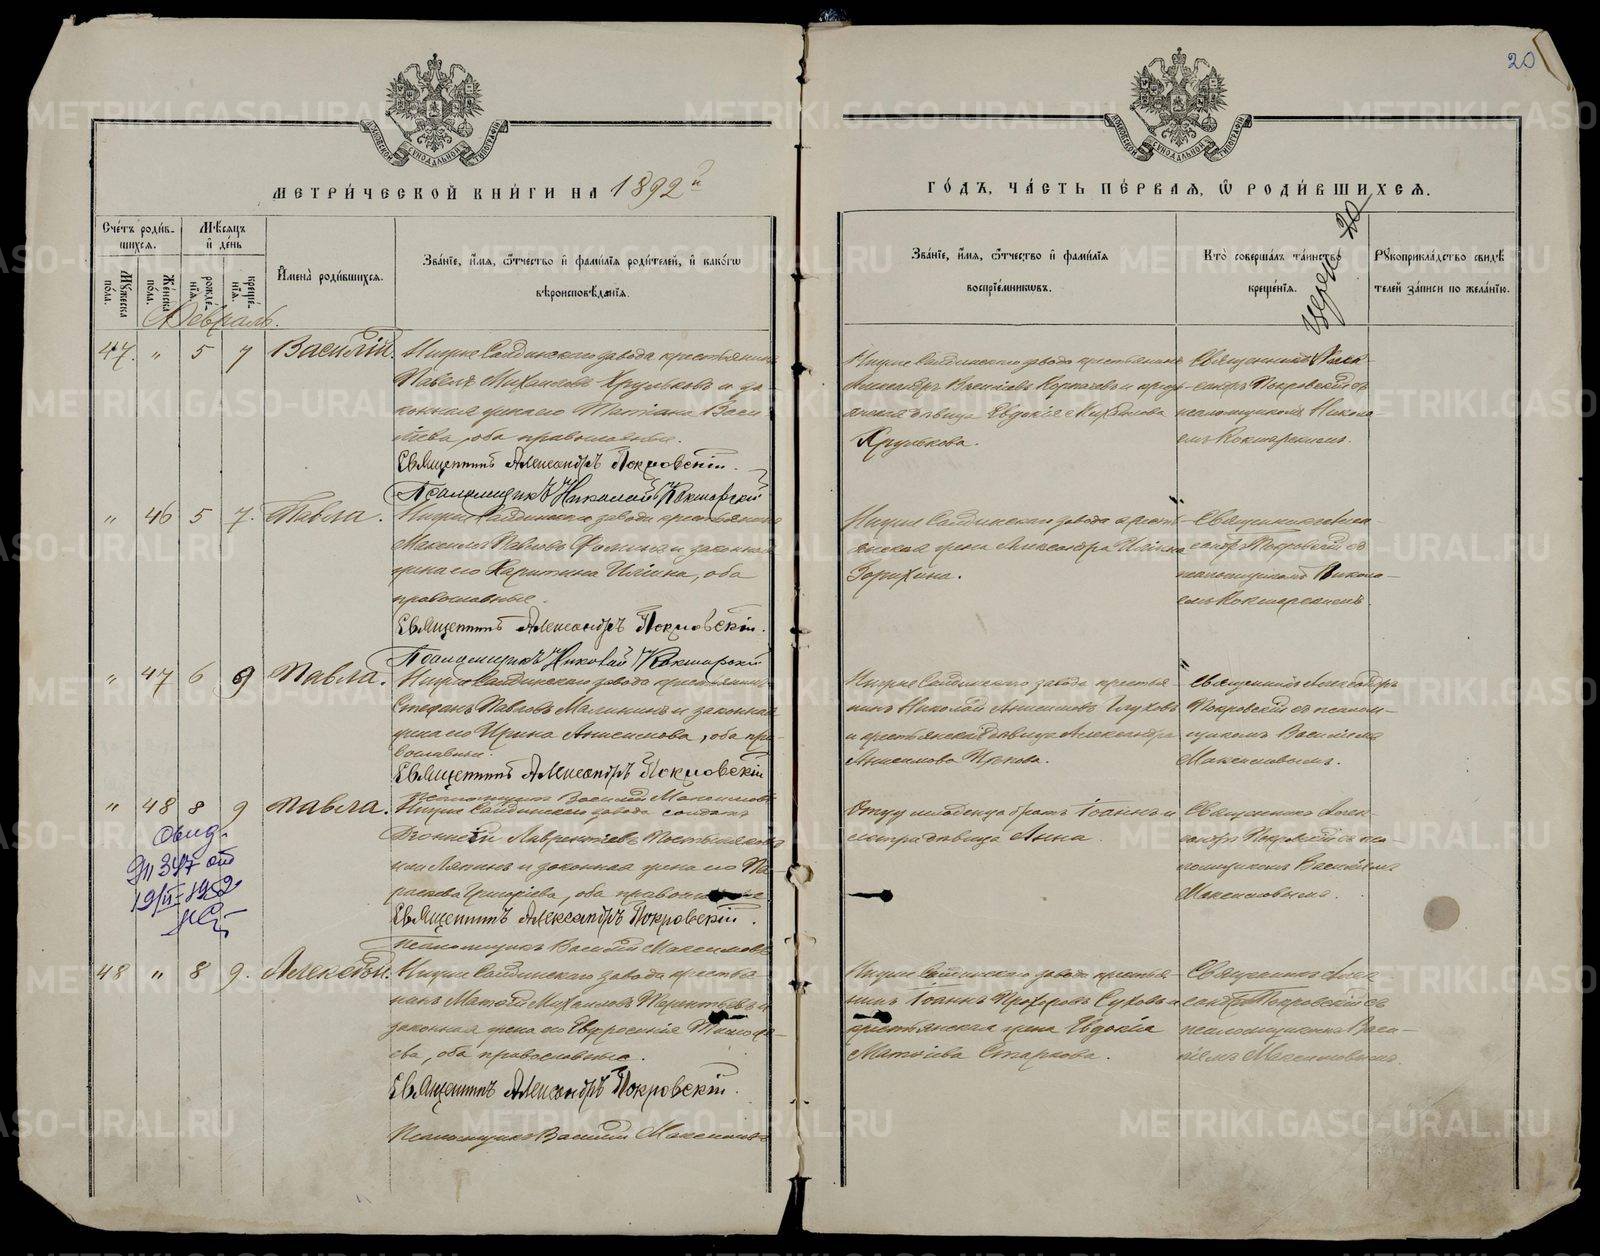 20
МЕТРИ́ЧЕСКОЙ КНИ́ГИ НА 1892й
ГО́ДЪ, ЧА́СТЬ ПЕ́РВАЯ, Ѿ РОДИ́ВШИХСЯ.
Сче́тъ роди́в-
шихся.
Мѣсяцъ
и де́нь
Му́жеска по́ла.
Же́нска по́ла.
рожде́-
нїя.
креще́-
нїя.
Имена̀ роди́вшихся.
Зва́нїе, и́мя, ѻ́тчество и фами́лїя роди́телей, и како́гѡ
вѣроисповѣ́данїя.
Зва́нїе, и́мя, ѻ́тчество и фами́лїя
воспрїе́мникѡвъ.
Кто̀ соверша́лъ та́инство
креще́нїя.
Рꙋкоприкла́дство свидѣ́
телей за́писи по жела́нїю.
Февраль.
47. " 5 7 Василій.
Нижне Салдинскаго завода крестьянинъ
Павелъ Михаиловъ Хрульковъ и за-
конная жена его Татіана Васи
ліева, оба православные.
Священникъ Александръ Покровскій.
Псаломщикъ Николай Кокшарскій
Нижне Салдинскаго завода крестьянинъ
Александръ Васильевъ и кресть
янская дѣвица Евдокія Михайлова
Хрулькова.
Священникъ Алек-
сандръ Покровскій съ
псаломщикомъ Никола
емъ Кокшарскимъ.
" 46 5 7. Павла.
Нижне Салдинскаго завода крестьянинъ
Максимъ Павловъ и законная
жена его Харитина Иліина, оба
православные.
Священникъ Александръ Покровскій.
Псаломщикъ Николай Кокшарскій
Нижне Салдинскаго завода кресть
янская жена Александра Иліина
Зорихина.
Священникъ Алек-
сандръ Покровскій съ
псаломщикомъ Никола-
емъ Кокшарскимъ.
" 47 6 9 Павла.
Нижне Салдинскаго завода крестьянинъ
Стефанъ Павловъ Малыкинъ и законная
жена его Ирина Анисимова, оба пра-
вославные.
Священникъ Александръ Покровскій
Псаломщикъ Василій Максимовъ
Нижне Салдинскаго завода крестья-
нинъ Николай Анисимовъ Глуховъ
и крестьянская дѣвица Александра
Анисимова
Священникъ Александръ
Покровскій съ псалом-
щикомъ Василіемъ
Максимовымъ.
" 48 8 9 Павла.
Нижне Салдинскаго завода солдатъ
Лаврентіевъ Постыляковъ
или Ляпинъ и законная жена его Па
раскева Григоріева, оба православные
Священникъ Александръ Покровскій.
Псаломщикъ Василій Максимовъ
Отцу младенца братъ Іоаннъ и
сестра дѣвица Анна.
Священникъ Алек-
сандръ Покровскій съ пса
ломщикомъ Василіемъ
Максимовымъ.
Свид.
№ 347 от
48 " 8 9. Алексѣй.
Нижне Салдинскаго завода крестья
нинъ Матѳей Михаиловъ Терентьевъ и
законная жена его Евфросинія Тимоѳе-
ева, оба православные.
Священникъ Александръ Покровскій.
Псаломщикъ Василій Максимовъ
Нижне Салдинскаго завода крестья
нинъ Іоаннъ Прохоровъ Суховъ и
крестьянская жена Евдокія
Матѳіева Старкова.
Священникъ Алек
сандръ Покровскій съ
псаломщикомъ Васи-
ліемъ Максимовымъ.
METRIKI.GASO-URAL.RU